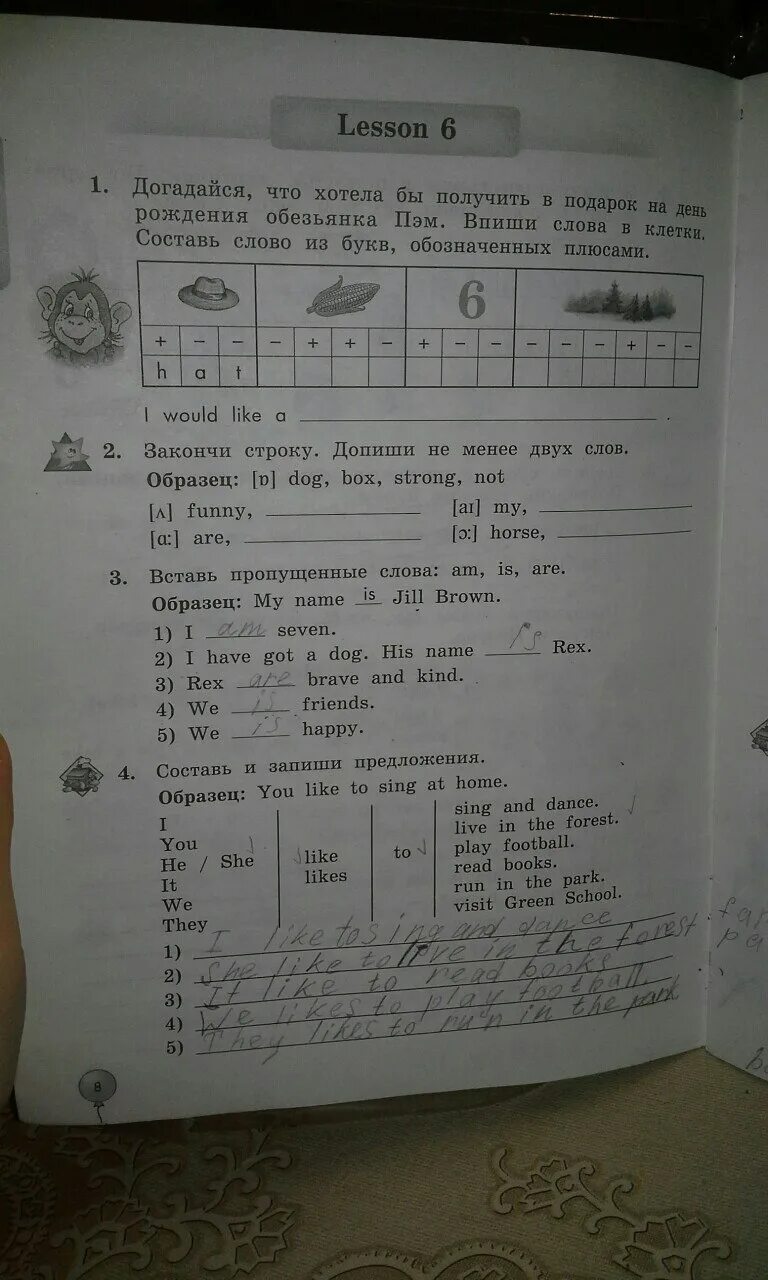 Lesson 6
1. Догадайся, что хотела бы получить в подарок на день
рождения обезьянка Пэм. Впиши слова в клетки.
Составь слово из букв, обозначенных плюсами.
6
+ – – – + + – + – – – – – + – –
h a t
I would like a ______ .
2. Закончи строку. Допиши не менее двух слов.
Образец: [ɒ] dog, box, strong, not
[ʌ] funny, ______ [aɪ] my, ______
[ɑ:] are, ______ [ɔ:] horse, ______
3. Вставь пропущенные слова: am, is, are.
Образец: My name is Jill Brown.
1) I am seven.
2) I have got a dog. His name is Rex.
3) Rex are brave and kind.
4) We is friends.
5) We is happy.
4. Составь и запиши предложения.
Образец: You like to sing at home.
I
You
He / She
It
We
They
like
likes
to
sing and dance.
live in the forest.
play football.
read books.
run in the park.
visit Green School.
1) I like to sing and dance
2) She like to live in the forest.
3) It like to read books
4) We likes to play football.
5) They likes to run in the park
8